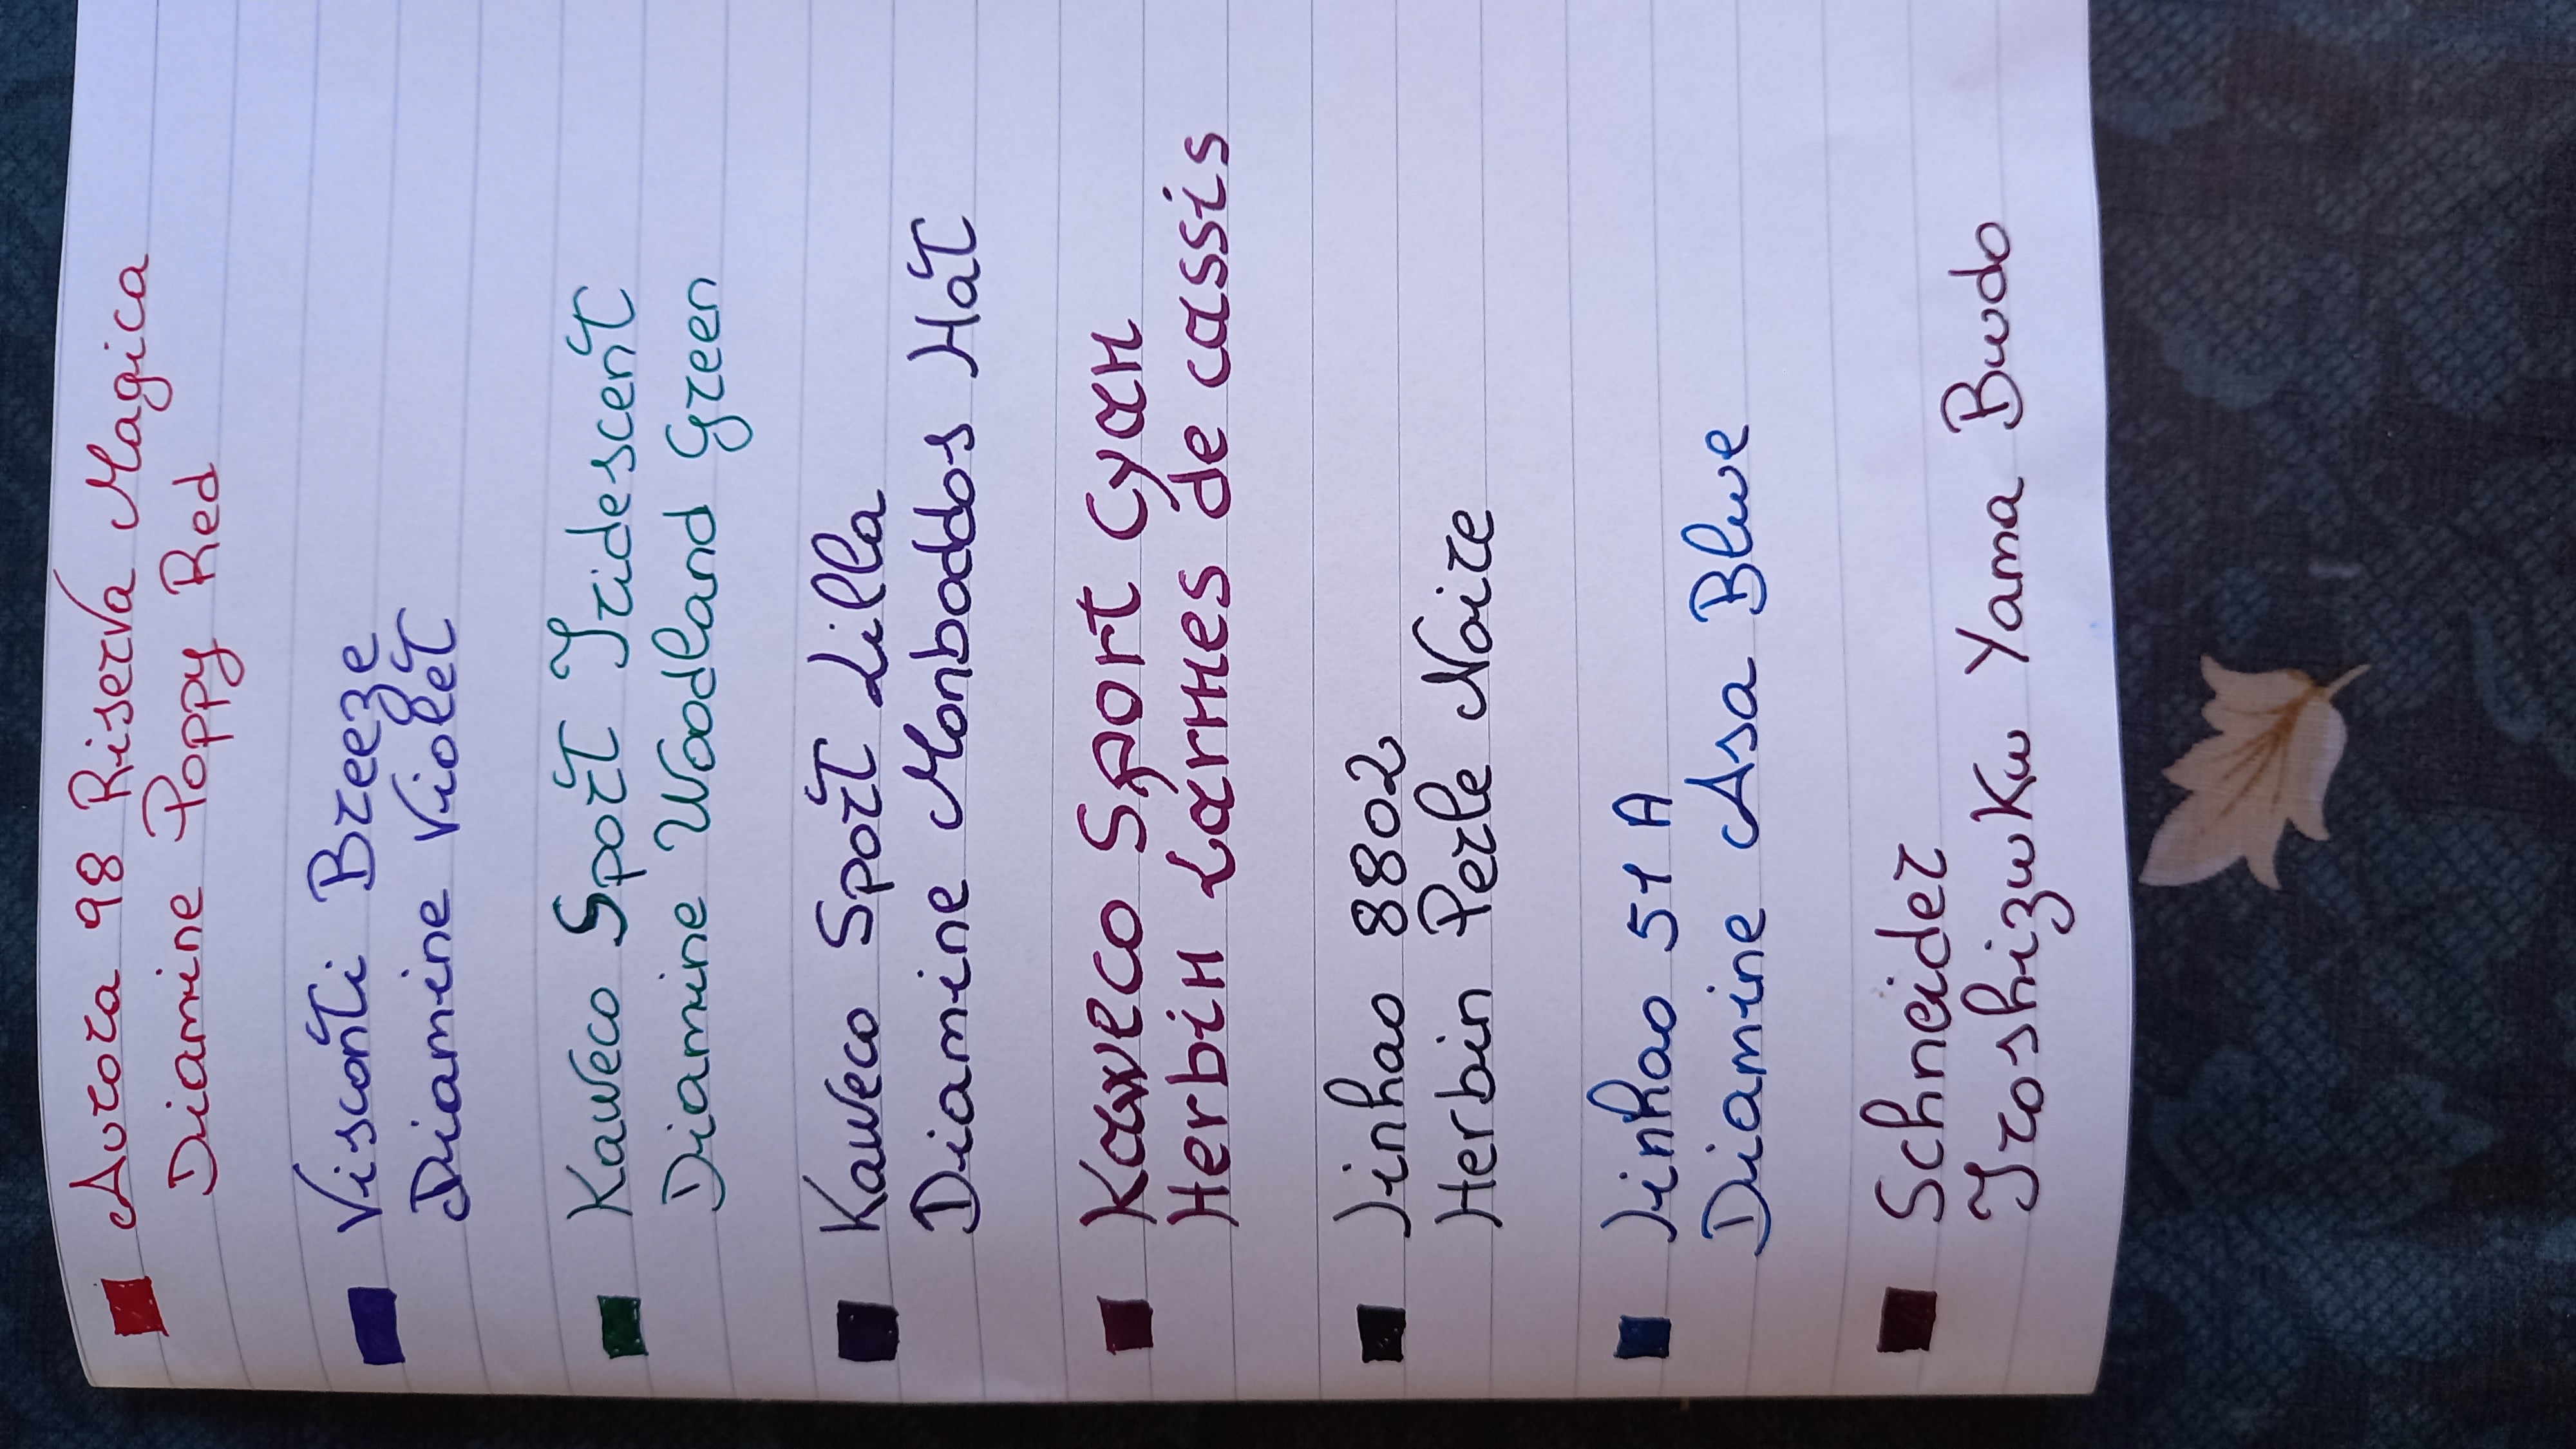 Aurora 98 Riserva Magica
Diamine Poppy Red
Visconti Breeze
Diamine Violet
Kaweco Sport Iridescent
Diamine Woodland Green
Kaweco Sport Lilla
Diamine Monboddos Hat
Kaweco Sport Cyan
Herbin Larmes de cassis
Jinhao 8802
Herbin Perle Noire
Jinhao 51A
Diamine Asa Blue
Schneider
Iroshizuku Yama Budo